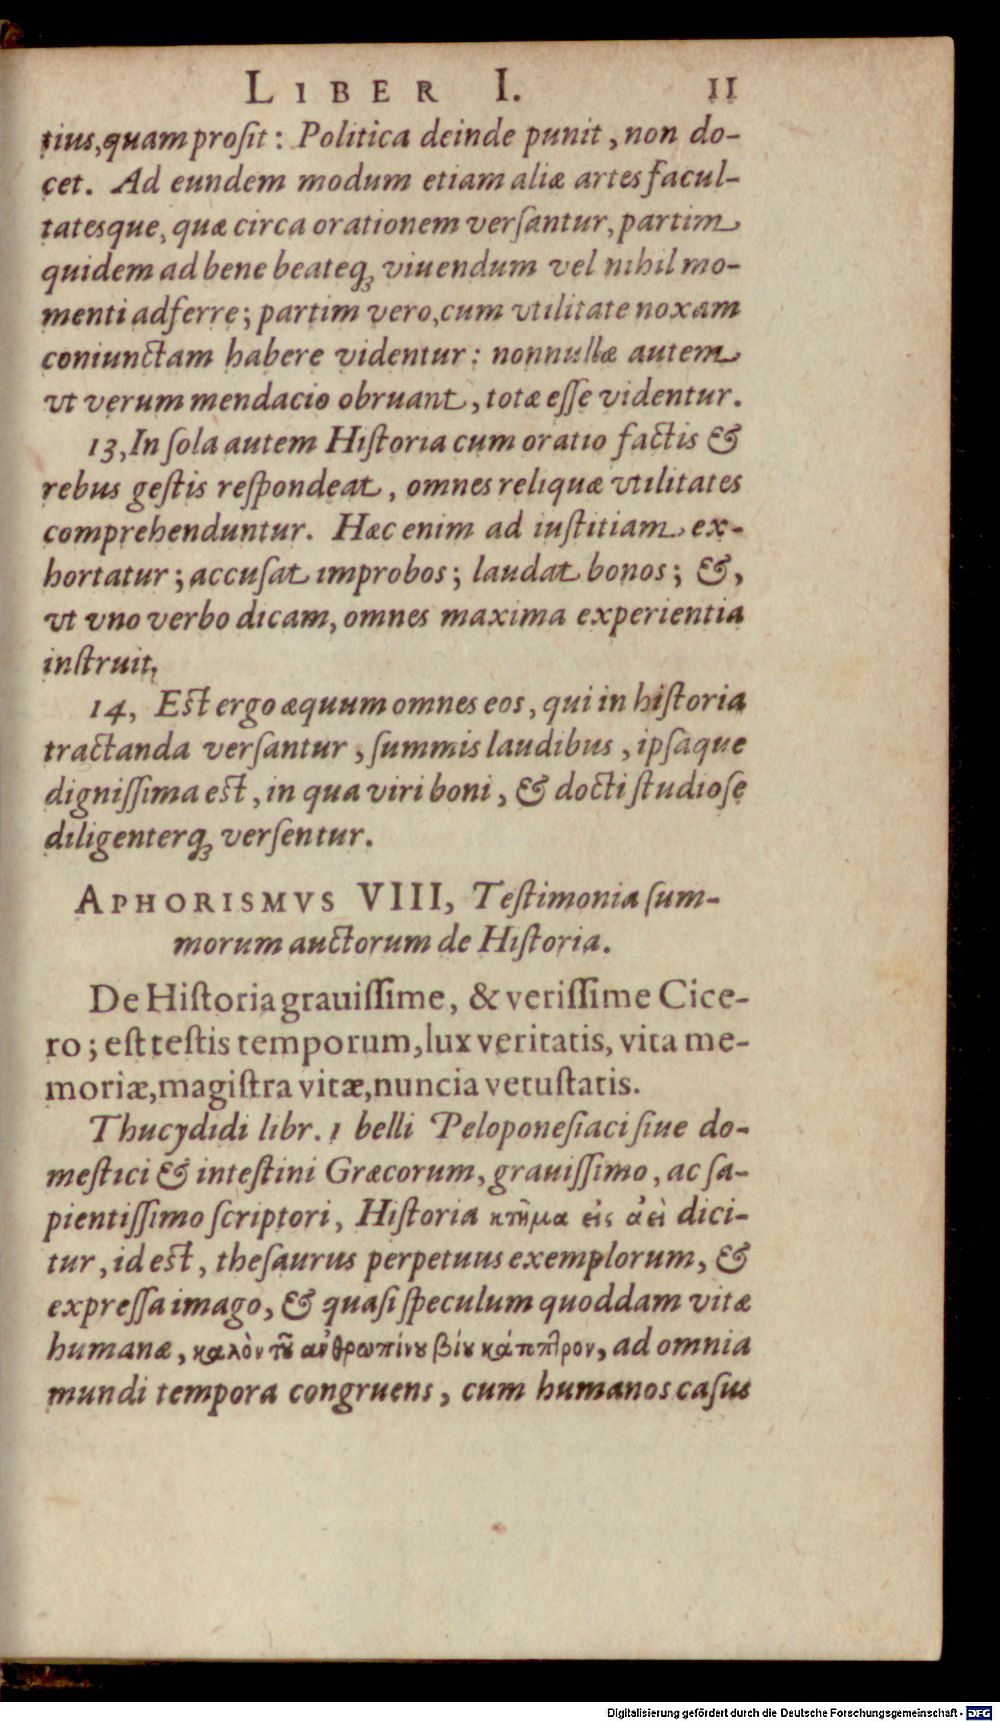 LIBER I. 11
tius, quam prosit: Politica deinde punit, non do-
cet. Ad eundem modum etiam aliæ artes facul-
tatesque, quæ circa orationem verſantur, partim
quidem ad bene beateq; viuendum vel nihil mo-
menti adferre; partim vero, cum vtilitate noxam
coniunctam habere videntur: nonnullæ autem
vt verum mendacio obruant, totæ eſſe videntur.
13, In ſola autem Hiſtoria cum oratio factis &
rebus geſtis reſpondeat, omnes reliquæ vtilitates
comprehenduntur. Hæc enim ad iuſtitiam ex-
hortatur; accuſat improbos; laudat bonos; &,
vt vno verbo dicam, omnes maxima experientia
inſtruit,
14, Eſt ergo æquum omnes eos, qui in hiſtoria
tractanda verſantur, ſummis laudibus, ipſaque
digniſſima eſt, in qua viri boni, & docti ſtudioſe
diligenterq; verſentur.
APHORISMVS VIII, Teſtimonia ſum-
morum auctorum de Hiſtoria.
De Hiſtoria grauiſſime, & veriſſime Cice-
ro; eſt teſtis temporum, lux veritatis, vita me-
moriæ, magiſtra vitæ, nuncia vetuſtatis.
Thucydidi libr. 1 belli Peloponeſiaci ſiue do-
meſtici & inteſtini Græcorum, grauiſſimo, ac ſa-
pientiſſimo ſcriptori, Hiſtoria κτῆμα εἰς ἀεὶ dici-
tur, id eſt, theſaurus perpetuus exemplorum, &
expreſſa imago, & quaſi ſpeculum quoddam vitæ
humanæ, καλὸν τοῦ ἀνθρωπίνου βίου κάτοπτρον, ad omnia
mundi tempora congruens, cum humanos caſus
Digitalisierung gefördert durch die Deutsche Forschungsgemeinschaft - DFG